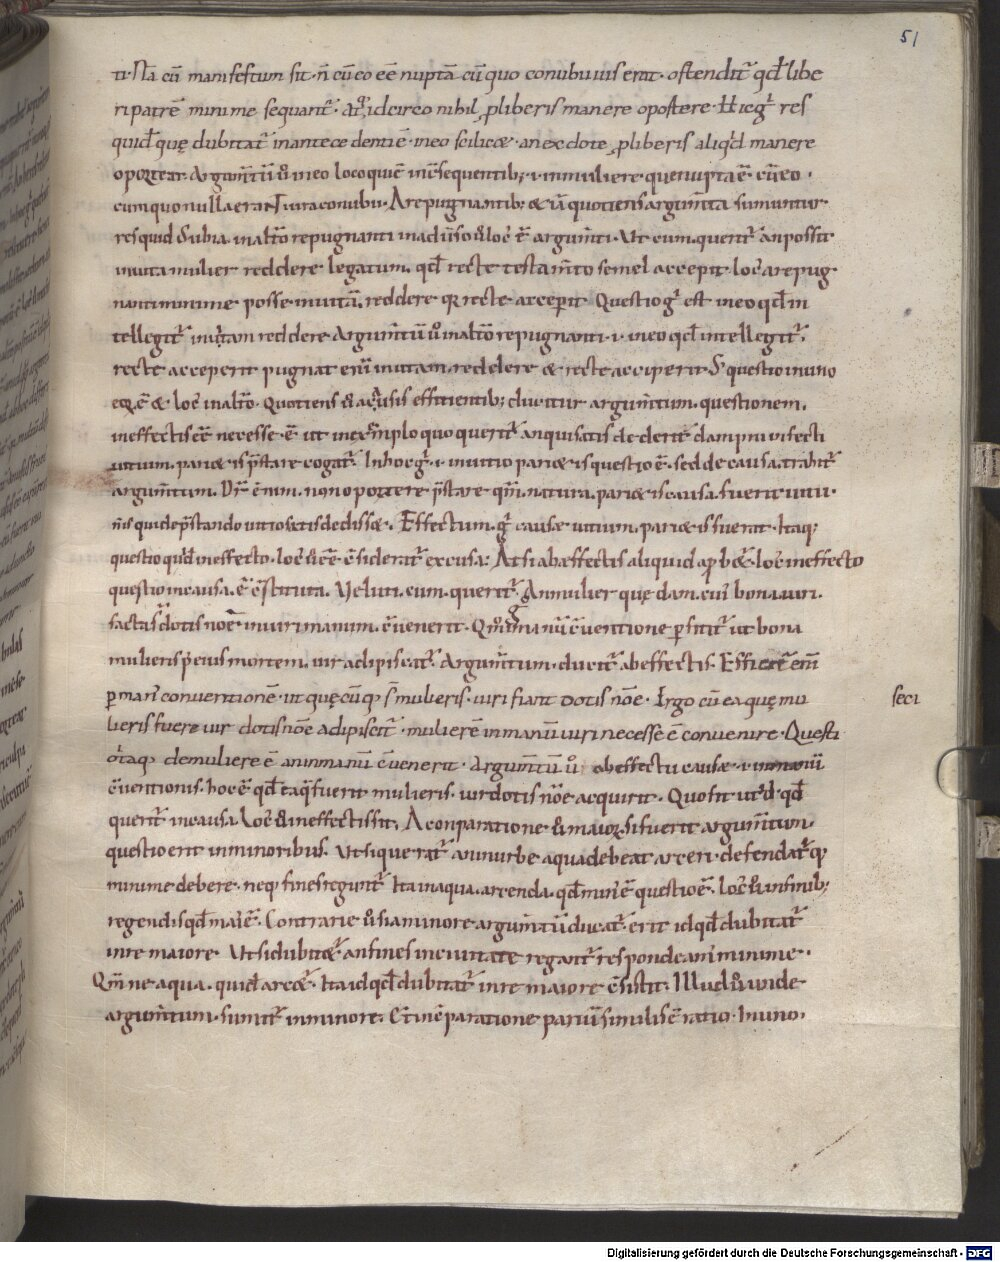 51
ti. Nā cū manifestum sit. n̄ cū eo eē nuptā cū quo conubii ius erat. ostendit̄ qd̄ libe
ri patrē minime sequant̄. Atq; idcirco nihil ꝓ liberis manere oportere. Hic g̃ res
quid̄ quę dubitat̄ in antecedenti ē. in eo scilicæ. an ex dote ꝓ liberis aliqd̄ manere
oporteat. Argum̄tū ů in eo loco qui ē in c̄sequentib;. i. in muliere que nupta ē. cū eo.
cum quo nulla erant iura conubii. A repugnantib; & iā quotiens argum̄ta sumuntur
res quid dubia. in alt̄o repugnanti in aduerso ů loc̄ ē argum̄ti. Ut cum querit̄ an possit
inuita mulier reddere legatum. qd̄ recte testam̄to semel accepit. loc̄ a repug
nanti minime posse inuitā reddere q̄ recte acceperit. Questio g̃ est in eo qd̄ in
tellegit̄ inuitam reddere. Argum̄tū ů in alt̄o repugnanti. i. in eo qd̄ intellegit̄.
recte acceperit. pugnat eni inuitam reddere & recte acceperit. S; questio in uno
eoꝝ ē & loc̄ in alt̄o. Quotiens ů a causis efficientib; ducitur argum̄tum. questionem.
in effectis eē necesse ē. ut in exemplo quo querit̄ an qui satis dederit dampni infecti
uitium. parietis p̄stare cogat̄. In hoc g̃. i. in uitio parietis questio ē. sed de causa trahit̄
argum̄tum. Dr̄ enim. non oportere p̄stare qm̄. natura. parietis causa. fuerit uitii.
n̄ is qui de p̄stando uitio satis dedissæ. Effectum. g̃ causæ uitium. parietis fuerat. Itaq;
questio quid̄ in effecto. loc̄ ů c̄siderat̄ ex causa. At si ab effectis aliquid ꝓbet̄. loc̄ in effecto
questio in causa. ē c̄stituta. Ueluti. cum. querit̄. An mulier quędam. cui bona uiri.
facta s̄ dotis noē in uiri manum. c̄uenerit. Qm̄ manū c̄uentione p̄ stitit̄ ut bona
mulieris p̄ eius mortem. uir adipiscat̄. Argum̄tum. ducit̄ ab effectis. Efficit̄ eni
ꝑ man̄ conuentionē. ut quęcūq; s̄ mulieris. uiri fiant dotis noē. Ergo cū ea quę mu
lieris fuere uir dotis noē adipiscit̄. mulierē in manū uiri necesse ē conuenire. Questi
feci
o itaq; de muliere ē an in manū c̄uenerit. Argum̄tū ů ab effectu causæ. i. in manū
c̄uentionis. hoc ē qd̄ ea q̄ fuerit mulieris. uir dotis noē acquirit. Quo fit ut id. qd̄
querit̄ in causa. loc̄ ů in effectis sit. A conparatione ů maioꝝ. si fuerit argum̄tum.
questio erit in minoribus. Ut si querat̄ an in urbe aqua debeat arceri. defendat̄ q;
minime debere. neq; fines regunt̄. Ita in aqua. arcenda. qd̄ min̄ ē questio ē. loc̄ ů in finib;
regendis qd̄ mai ē. Contrarie ů si a minore argum̄tū ducat̄. erit id qd̄ dubitat̄
in re maiore. Ut si dubitet̄ an fines in ciuitate regant̄ respondeam̄ minime.
Qm̄ ne aqua. quid̄ arcet̄. Ita id qd̄ dubitat̄ in re maiore c̄sistit. Illud ů unde
argum̄tum. sumit̄ in minore. C̄t in c̄paratione pariū similis ē ratio. In uno.
Digitalisierung gefördert durch die Deutsche Forschungsgemeinschaft - DFG